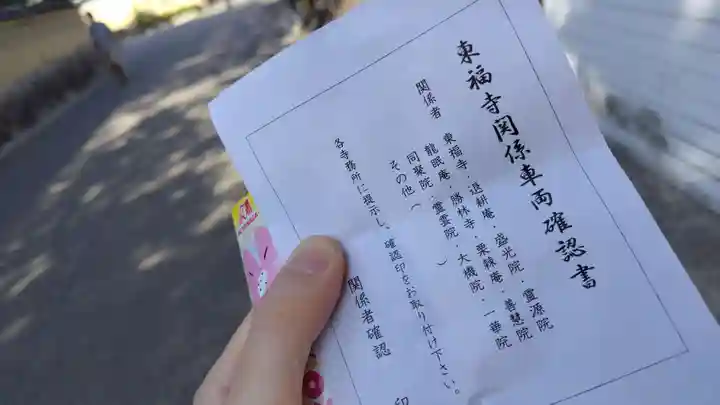 東福寺関係車両確認書
関係者 東福寺・退耕庵・盛光院・霊源院
龍眠庵・勝林寺・栗棘庵・善慧院
同聚院・霊雲院・大機院・一華院
その他( )
各寺務所に提示し、確認印をお取り付け下さい。
関係者確認 印